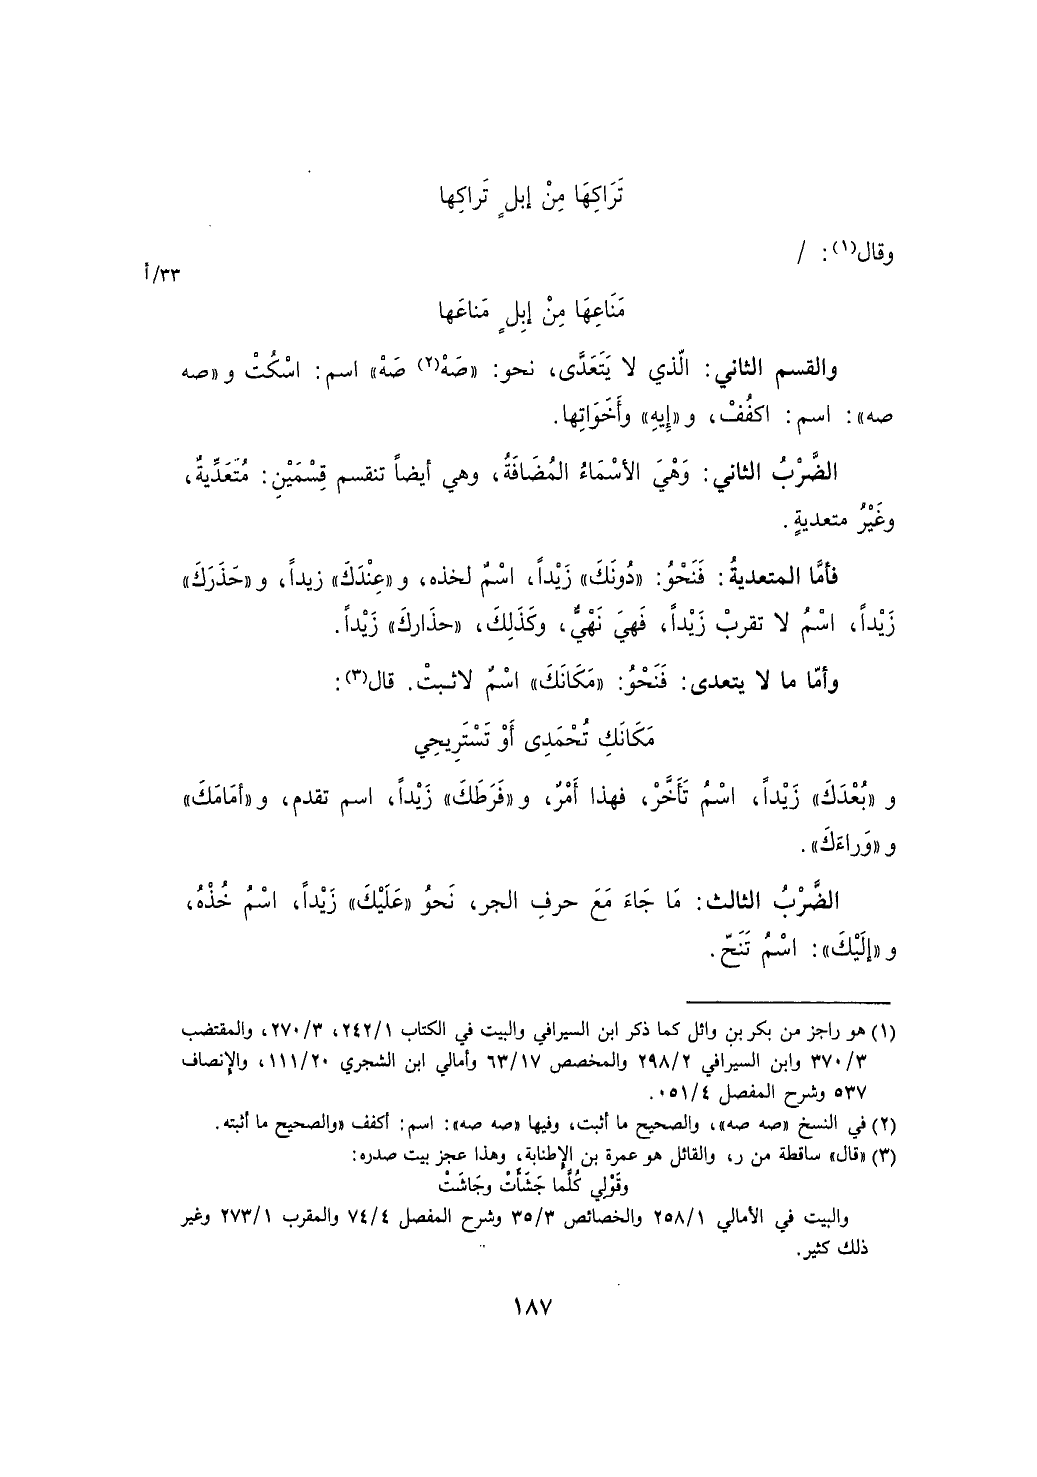 تَرَاكِهَا مِنْ إبلٍ تَراكِها
وقال(١): /
٣٣/أ
مَنَاعِهَا مِنْ إبِلٍ مَناعَها
والقسم الثاني: الّذي لا يَتَعَدَّى، نحو: «صَهْ(٢) صَهْ» اسم: اسْكُتْ و «صه
صه»: اسم: اكفُفْ، و «إِيهِ» وأَخَوَاتِها.
الضَّرْبُ الثاني: وَهْيَ الأسْمَاءُ المُضَافَةُ، وهي أيضاً تنقسم قِسْمَيْنِ: مُتَعَدِّيةٌ،
وغَيْرُ متعديةٍ.
فأمَّا المتعديةُ: فَنَحْوُ: «دُونَكَ» زَيْداً، اسْمٌ لخذه، و «عِنْدَكَ» زيداً، و «حَذَرَكَ»
زَيْداً، اسْمُ لا تقربْ زَيْداً، فَهِيَ نَهْيٌ، وكَذَلِكَ، «حذَارِكَ» زَيْداً.
وأمّا ما لا يتعدى: فَنَحْوُ: «مَكَانَكَ» اسْمٌ لاثبتْ. قال(٣):
مَكَانَكِ تُحْمَدِى أَوْ تَسْتَرِيحِي
و «بُعْدَكَ» زَيْداً، اسْمُ تَأَخَّرْ، فهذا أَمْرٌ، و «فَرَطَكَ» زَيْداً، اسم تقدم، و «أمَامَكَ»
و «وَراءَكَ».
الضَّرْبُ الثالث: مَا جَاءَ مَعَ حرفِ الجر، نَحوُ «عَلَيْكَ» زَيْداً، اسْمُ خُذْهُ،
و «إلَيْكَ»: اسْمُ تَنَحّ.
(١) هو راجز من بكر بن وائل كما ذكر ابن السيرافي والبيت في الكتاب ٢٤٢/١، ٢٧٠/٣، والمقتضب
٣٧٠/٣ وابن السيرافي ٢٩٨/٢ والمخصص ٦٣/١٧ وأمالي ابن الشجري ١١١/٢٠، والإنصاف
٥٣٧ وشرح المفصل ٠٥١/٤.
(٢) في النسخ «صه صه»، والصحيح ما أثبت، وفيها «صه صه»: اسم: أكفف «والصحيح ما أثبته.
(٣) «قال» ساقطة من ر، والقائل هو عمرة بن الإطنابة، وهذا عجز بيت صدره:
وقَوْلِي كُلَّما جَشَأَتْ وجَاشَتْ
والبيت في الأمالي ٢٥٨/١ والخصائص ٣٥/٣ وشرح المفصل ٧٤/٤ والمقرب ٢٧٣/١ وغير
ذلك كثير.
١٨٧